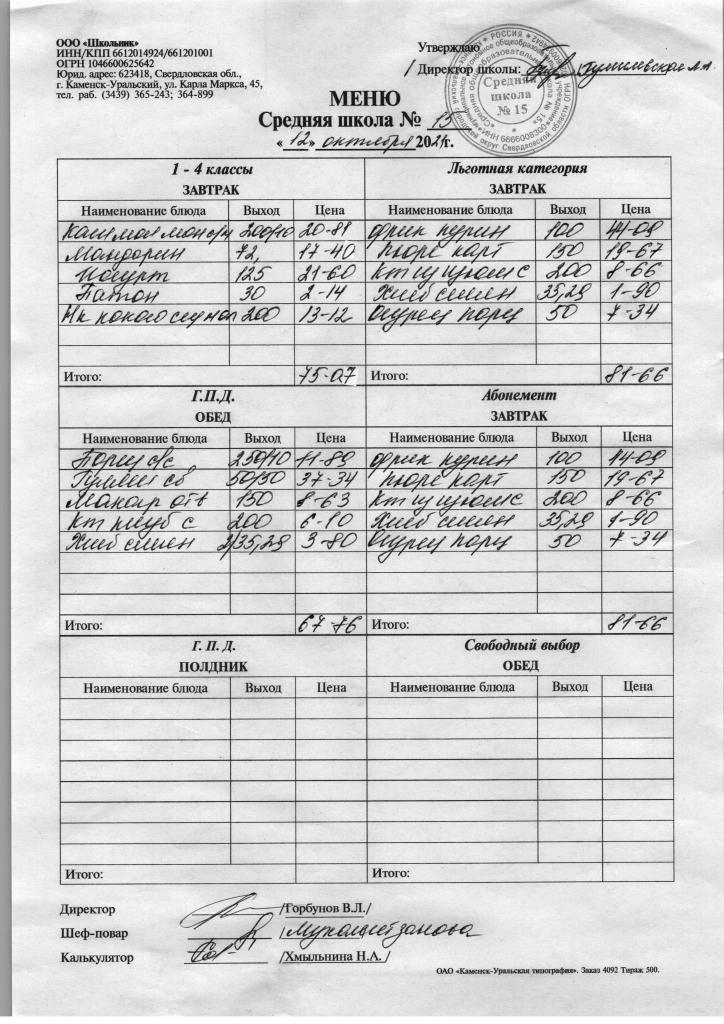 ООО «Школьник»
ИНН/КПП 6612014924/661201001
ОГРН 1046600625642
Юрид. адрес: 623418, Свердловская обл.,
г. Каменск-Уральский, ул. Карла Маркса, 45,
тел. раб. (3439) 365-243; 364-899
Утверждаю
Директор школы:
Средняя школа № 15
МЕНЮ
Средняя школа № 15
«12» октября 2021г.
1 - 4 классы Льготная категория
ЗАВТРАК ЗАВТРАК
Наименование блюда Выход Цена Наименование блюда Выход Цена
200/10 20-81 100 44-09
Мандарин 72, 17-40 Пюре карт 150 19-67
Йогурт 125 21-60 200 8-66
Батон 30 2-14 Хлеб 35,29 1-90
200 13-12 Огурец порц 50 7-34
Итого: 75-07 Итого: 81-66
Г.П.Д. Абонемент
ОБЕД ЗАВТРАК
Наименование блюда Выход Цена Наименование блюда Выход Цена
Борщ с/с 250/10 11-89 100 44-09
50/50 37-34 Пюре карт 150 19-67
Макар отв 150 8-63 200 8-66
200 6-10 Хлеб 35,29 1-90
Хлеб 2/35,29 3-80 Огурец порц 50 7-34
Итого: 67-76 Итого: 81-66
Г. П. Д. Свободный выбор
ПОЛДНИК ОБЕД
Наименование блюда Выход Цена Наименование блюда Выход Цена
Итого: Итого:
Директор /Горбунов В.Л./
Шеф-повар /
Калькулятор /Хмыльнина Н.А. /
ОАО «Каменск-Уральская типография». Заказ 4092 Тираж 500.